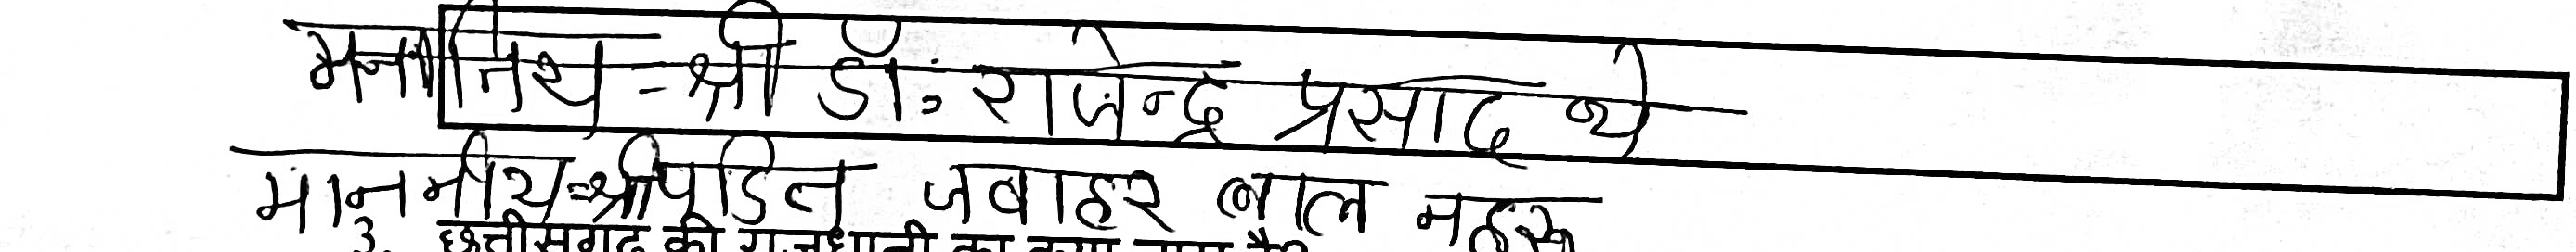 मनानिय - श्री डॉ. राजेन्द्र प्रसाद थे
माननीय-श्री पंडित जवाहर लाल नहरू
3. छत्तीसगढ़ की राजधानी का क्या नाम है?